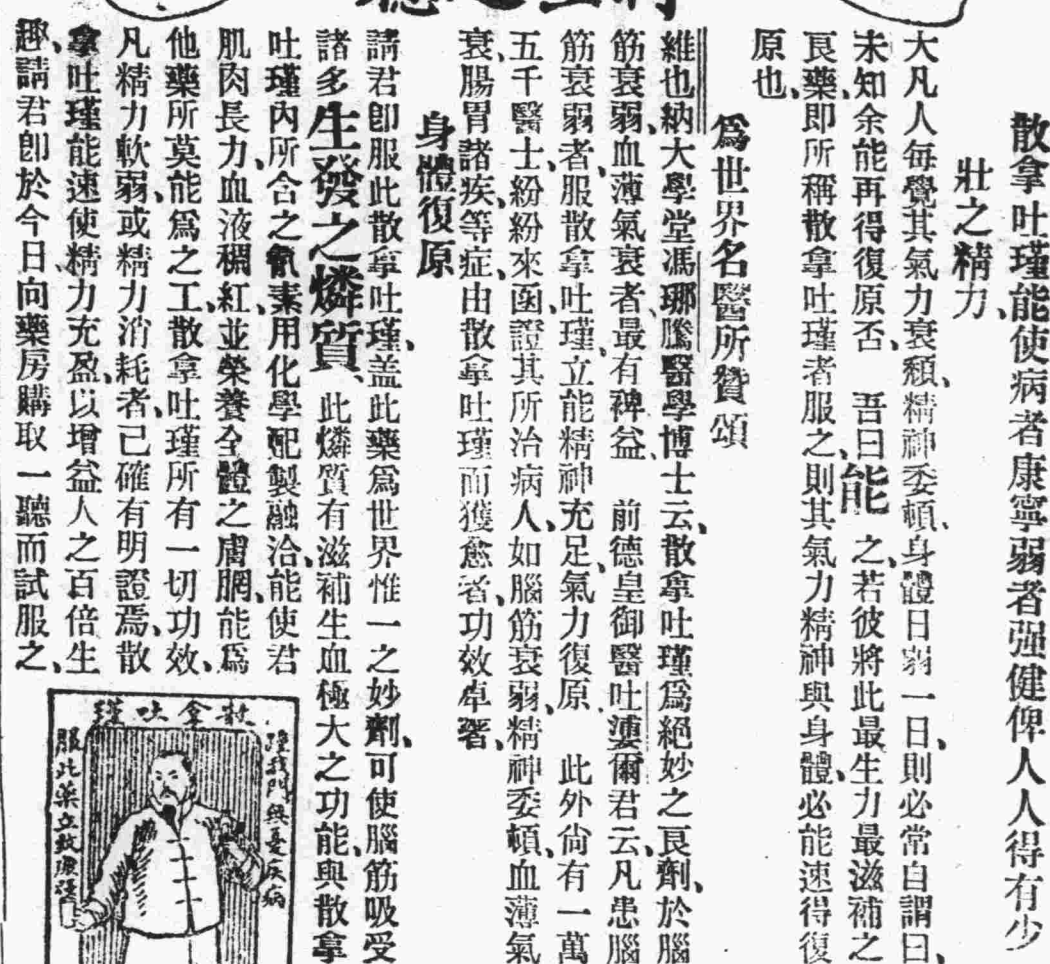 散拿吐瑾能使病者康寧弱者强健俾人人得有少
壯之精力、
大凡人每覺其氣力衰頹、精神委頓、身體日弱一日、則必常自謂曰、
未知余能再得復原否 吾曰能之、若彼將此最生力最滋補之
良藥、卽所稱散拿吐瑾者服之、則其氣力精神與身體、必能速得復
原也、
爲世界名醫所贊頌
維也納大學堂馮瑯騰醫學博士云、散拿吐瑾爲絕妙之良劑、於腦
筋衰弱、血薄氣衰者、最有裨益、 前德皇御醫吐爾君云、凡患腦
筋衰弱者、服散拿吐瑾、立能精神充足、氣力復原、 此外尙有一萬
五千醫士、紛紛來函、證其所治病人、如腦筋衰弱、精神委頓、血薄氣
衰、腸胃諸疾、等症、由散拿吐瑾而獲愈者、功效卓著、
身體復原
請君卽服此散拿吐瑾、盖此藥爲世界惟一之妙劑、可使腦筋吸受
諸多生發之燐質、此燐質有滋補生血極大之功能、與散拿
吐瑾內所含之氮素、用化學配製融洽、能使君
肌肉長力、血液稠紅、並榮養全體之膚膶、能爲
他藥所莫能爲之工、散拿吐瑾所有一切功效、
凡精力軟弱、或精力消耗者、已確有明證焉、散
拿吐瑾能速使精力充盈、以增益人之百倍生
趣、請君卽於今日、向藥房購取一聽而試服之、
散拿吐瑾
我門無憂疾病
服此藥立致康强